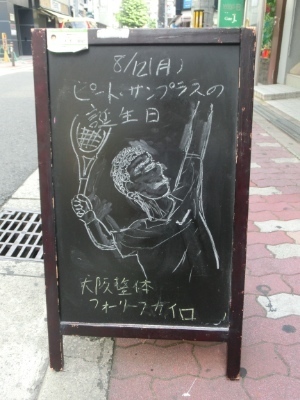 8/12(月)
ピート・サンプラスの
誕生日
大阪整体
フォーリーフカイロ